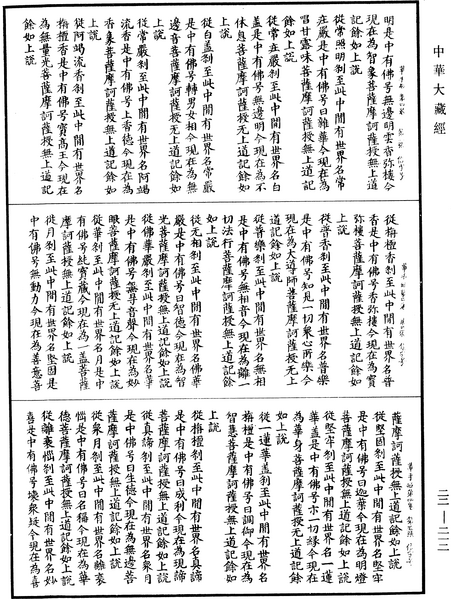 中華大藏經
明是中有佛号無邊明雲香弥樓今
現在為智象菩薩摩訶薩授無上道
記餘如上說
從常照明剎至此中間有世界名常
在嚴是中有佛号曰雜華今現在為
唱甘露味菩薩摩訶薩授無上道記
餘如上說
從常在嚴剎至此中間有世界名白
蓋是中有佛号無邊明今現在為不
休息菩薩摩訶薩授無上道記餘如
上說
從白蓋剎至此中間有世界名常嚴
是中有佛号轉男女相今現在為無
邊音菩薩摩訶薩授无上道記餘如
上說
從常嚴剎至此中間有世界名阿竭
流香是中有佛号上香德今現在為
香象菩薩摩訶薩授无上道記餘如
上說
從阿竭流香剎至此中間有世界名
栴檀香是中有佛号寶高王今現在
為無量光菩薩摩訶薩授無上道記
餘如上說
從栴檀香剎至此中間有世界名普
香是中有佛号香弥樓今現在為寶
弥樓菩薩摩訶薩授無上道記餘如
上說
從普香剎至此中間有世界名普樂
是中有佛号知見一切衆心所樂今
現在為大導師菩薩摩訶薩授无上
道記餘如上說
從普樂剎至此中間有世界名無相
是中有佛号無相音今現在為離一
切法行菩薩摩訶薩授無上道記餘
如上說
從无相剎至此中間有世界名佛華
嚴是中有佛号曰智德今現在為智
光菩薩摩訶薩授無上道記餘如上說
從佛華嚴剎至此中間有世界名華
是中有佛号無㝵音聲今現在為妙
眼菩薩摩訶薩授無上道記餘如上說
從華剎至此中間有世界名月是中
有佛号純寶藏今現在為一蓋菩薩
摩訶薩授無上道記餘如上說
從月剎至此中間有世界名堅固是
中有佛号無動力今現在為善意菩
薩摩訶薩授無上道記餘如上說
從堅固剎至此中間有世界名堅牢
是中有佛号曰迦華今現在為明燈
菩薩摩訶薩授無上道記餘如上說
從堅牢剎至此中間有世界名一蓮
華蓋是中有佛号示一切緣今現在
為華身菩薩摩訶薩授無上道記餘
如上說
從一蓮華蓋剎至此中間有世界名
栴檀是中有佛号曰調御今現在為
智慧菩薩摩訶薩授無上道記餘如
上說
從栴檀剎至此中間有世界名真諦
是中有佛号曰成利今現在為現諦
菩薩摩訶薩授無上道記餘如上說
從真諦剎至此中間有世界名衆月
是中有佛号曰生德今現在為無邊善
薩摩訶薩授無上道記餘如上說
從衆月剎至此中間有世界名離衰
惱是中有佛号曰名稱今現在為華
德菩薩摩訶薩授無上道記餘如上說
從離衰惱剎至此中間有世界名妙
喜是中有佛号壞衆疑今現在為喜